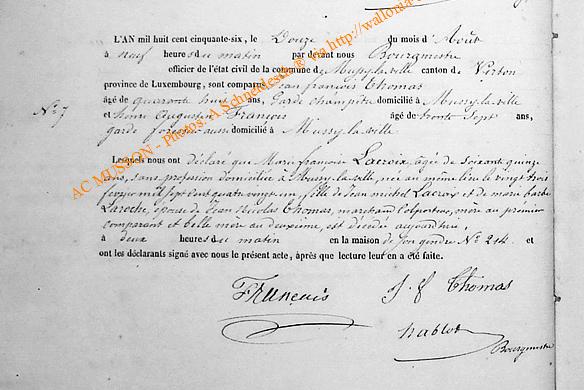 L'AN mil huit cent cinquante-six, le Douze du mois d'Août
à neuf heures du matin par devant nous Bourgmestre
officier de l'état civil de la commune de Mussy-la-ville canton de Virton
province de Luxembourg, sont comparus Jean françois Thomas
âgé de quarante huit ans, Garde champêtre domicilié à Mussy-la-ville
N° 7 et henri Augustin François âgé de trente Sept ans,
garde forestier aussi domicilié à Mussy-la-ville
Lesquels nous ont déclaré que Marie françoise Lacroix, âgée de Soixante quinze
ans, sans profession domiciliée à Mussy-la-ville, née au même lieu le vingt trois
fevrier mil sept cent quatre vingt un, fille de Jean michel Lacroix et de marie barbe
Laroche, épouse de Jean Nicolas Thomas, marchand colporteur, mère au premier
comparant et belle mère au deuxième, est décédée aujourd'hui,
à deux heures du matin en la maison de son gendre N° 214. et
ont les déclarants signé avec nous le présent acte, après que lecture leur en a été faite.
François J. F Thomas
hablot
Bourgmestre
AC MUSSON - Photos: A Schneidesch © via http://wallonia